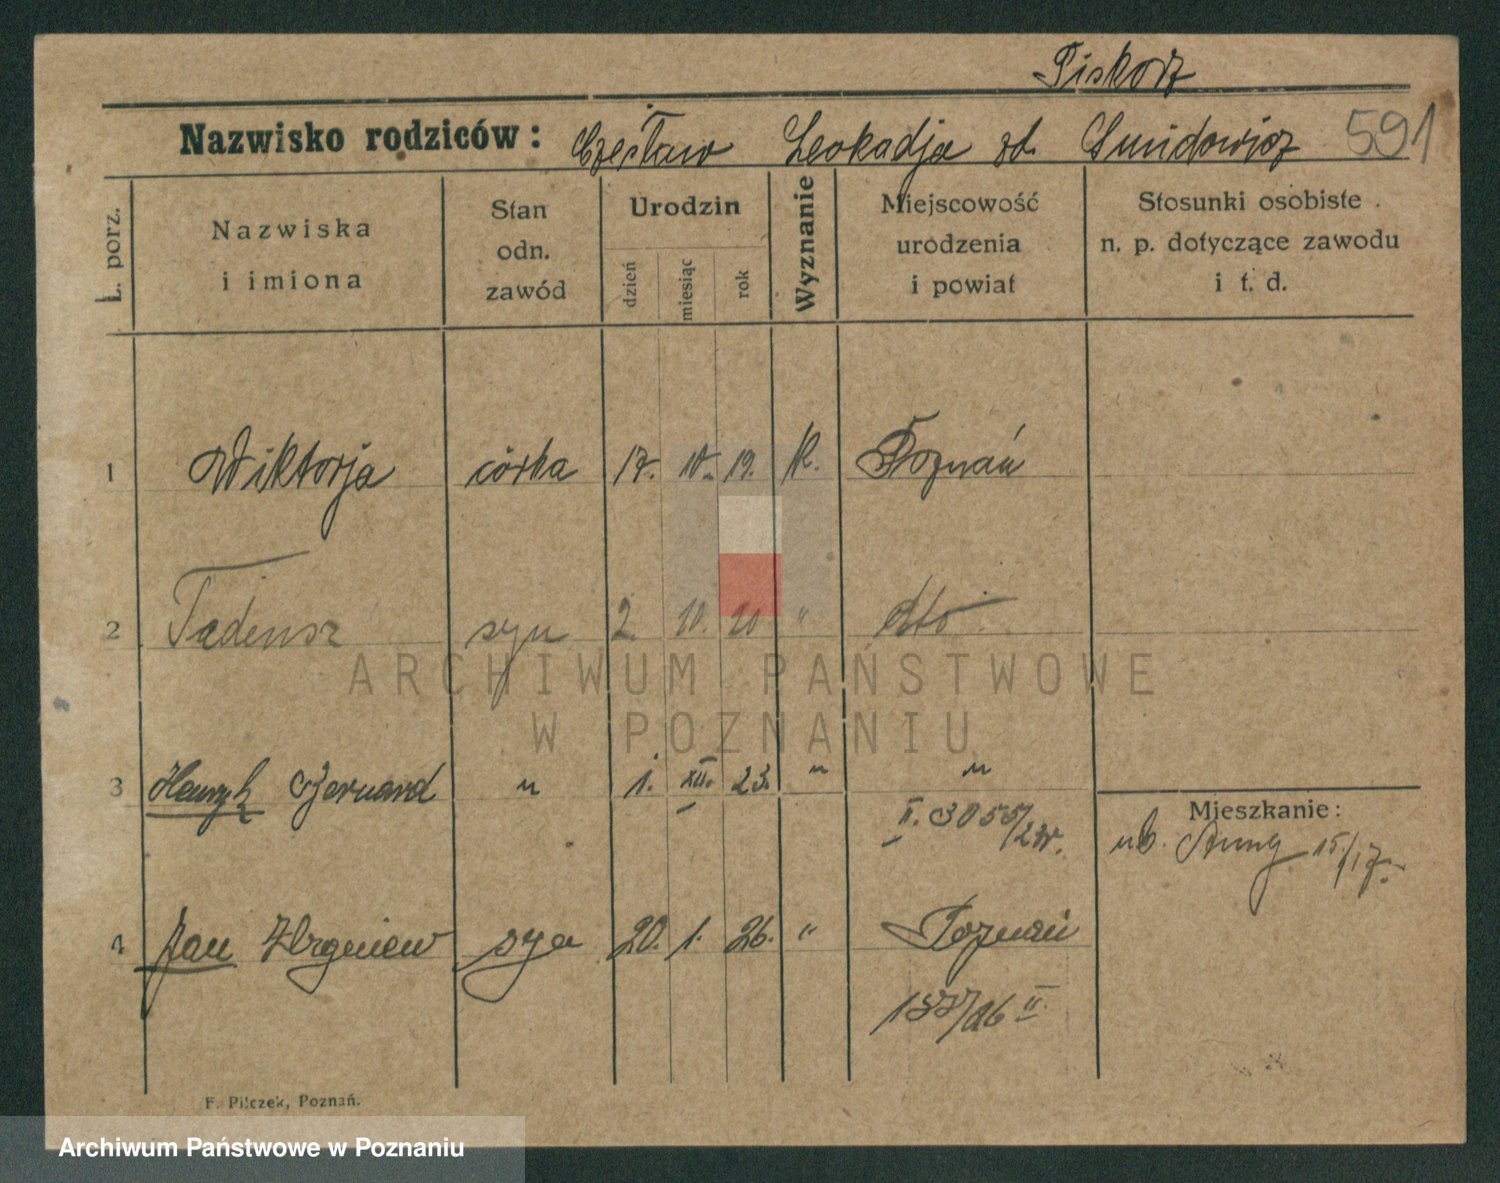 Piskorz
Nazwisko rodziców: Czesław Leokadja zd. Smidowicz 591
L. porz.
Nazwiska i imiona
Stan odn. zawód
Urodzin
dzień
miesiąc
rok
Wyznanie
Miejscowość urodzenia i powiat
Stosunki osobiste n. p. dotyczące zawodu i t. d.
1 Wiktorja córka 17. 10. 19. K. Poznań
2 Tadeusz syn 2. 10. 20 " dto
ARCHIWUM PAŃSTWOWE
W POZNANIU
3 Henryk Bernard " 1. XII. 23. " "
II. 3055/23.
Mieszkanie:
15/17.
4 Jan Zbigniew syn 20. 1. 26. " Poznań
137/26 II.
F. Pilczek, Poznań.
Archiwum Państwowe w Poznaniu